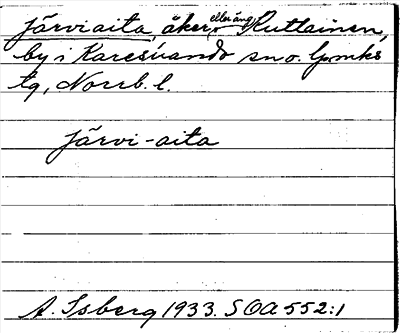 Järviaita, åker, eller äng Kuttainen,
by i Karesuando sn o. lpmks
tg, Norrb. l.
Järvi-aita
A. Isberg 1933. SOA 552:1